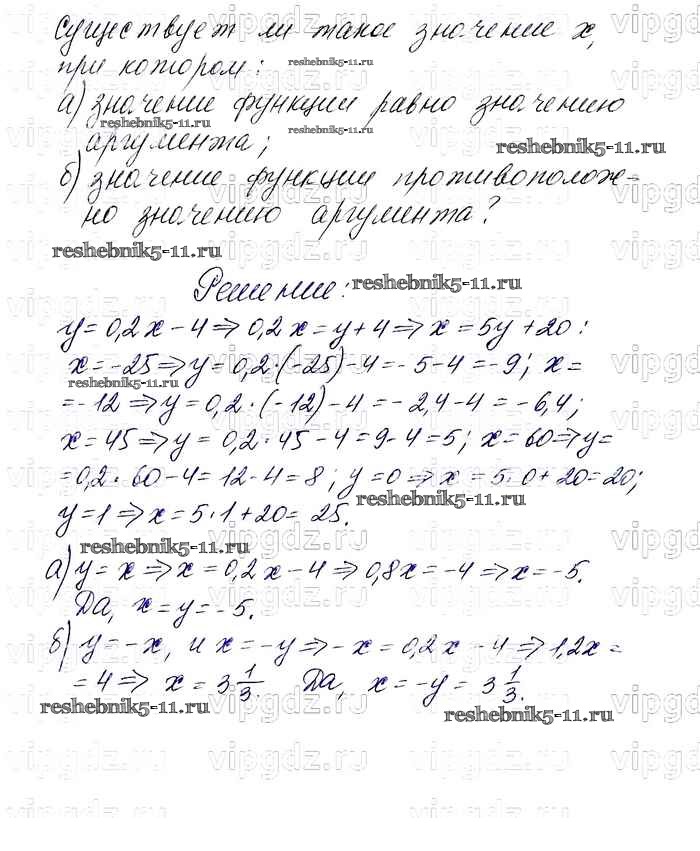 Существует ли такое значение x,
при котором:
reshebnik5-11.ru
а) значение функции равно значению
reshebnik5-11.ru
reshebnik5-11.ru
аргумента;
reshebnik5-11.ru
б) значение функции противополож-
но значению аргумента?
reshebnik5-11.ru
Решение:
reshebnik5-11.ru
y = 0,2x - 4 ⇒ 0,2x = y + 4 ⇒ x = 5y + 20:
x = -25 ⇒ y = 0,2·(-25) - 4 = -5 - 4 = -9; x =
reshebnik5-11.ru
= -12 ⇒ y = 0,2·(-12) - 4 = -2,4 - 4 = -6,4;
x = 45 ⇒ y = 0,2·45 - 4 = 9 - 4 = 5; x = 60 ⇒ y =
= 0,2·60 - 4 = 12 - 4 = 8; y = 0 ⇒ x = 5·0 + 20 = 20;
reshebnik5-11.ru
y = 1 ⇒ x = 5·1 + 20 = 25.
reshebnik5-11.ru
а) y = x ⇒ x = 0,2x - 4 ⇒ 0,8x = -4 ⇒ x = -5.
Да, x = y = -5.
б) y = -x, и x = -y ⇒ -x = 0,2x - 4 ⇒ 1,2x =
= 4 ⇒ x = 3 1/3. Да, x = -y = 3 1/3.
reshebnik5-11.ru
reshebnik5-11.ru
vipgdz.ru